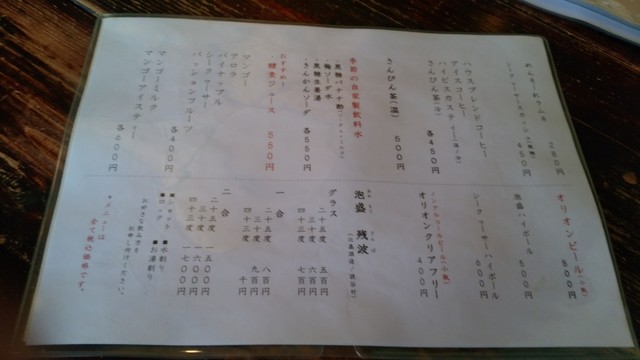 ２８０円
シークヮーサースカッシュ
４５０円
ハウスブレンドコーヒー
アイスコーヒー
ハイビスカスティー（温／冷）
さんぴん茶（冷）
各４５０円
さんぴん茶（温）
５００円
季節の自家製飲料水
・黒糖バナナ酢
・梅ソーダ水
・黒糖生姜湯
・きんかんソーダ
各５５０円
おすすめ！
・酵素ジュース ５５０円
マンゴー
アセロラ
パイナップル
シークヮーサー
パッションフルーツ
各４００円
マンゴーミルク
マンゴーアイスティー
各６００円
オリオンビール（小瓶）
５００円
泡盛ハイボール
５００円
シークヮーサーハイボール
６００円
ノンアルコールビール（小瓶）
オリオンクリアフリー
４００円
泡盛 残波
グラス
二十五度 五百円
三十度 六百円
四十三度 七百円
一合
二十五度 八百円
三十度 九百円
四十三度 千円
二合
二十五度 一五００円
三十度 一六００円
四十三度 一七００円
■ショット ■水割り
■ロック ■お湯割り
お好きな飲み方を
お申し付けください。
メニューは
全て税込価格です。